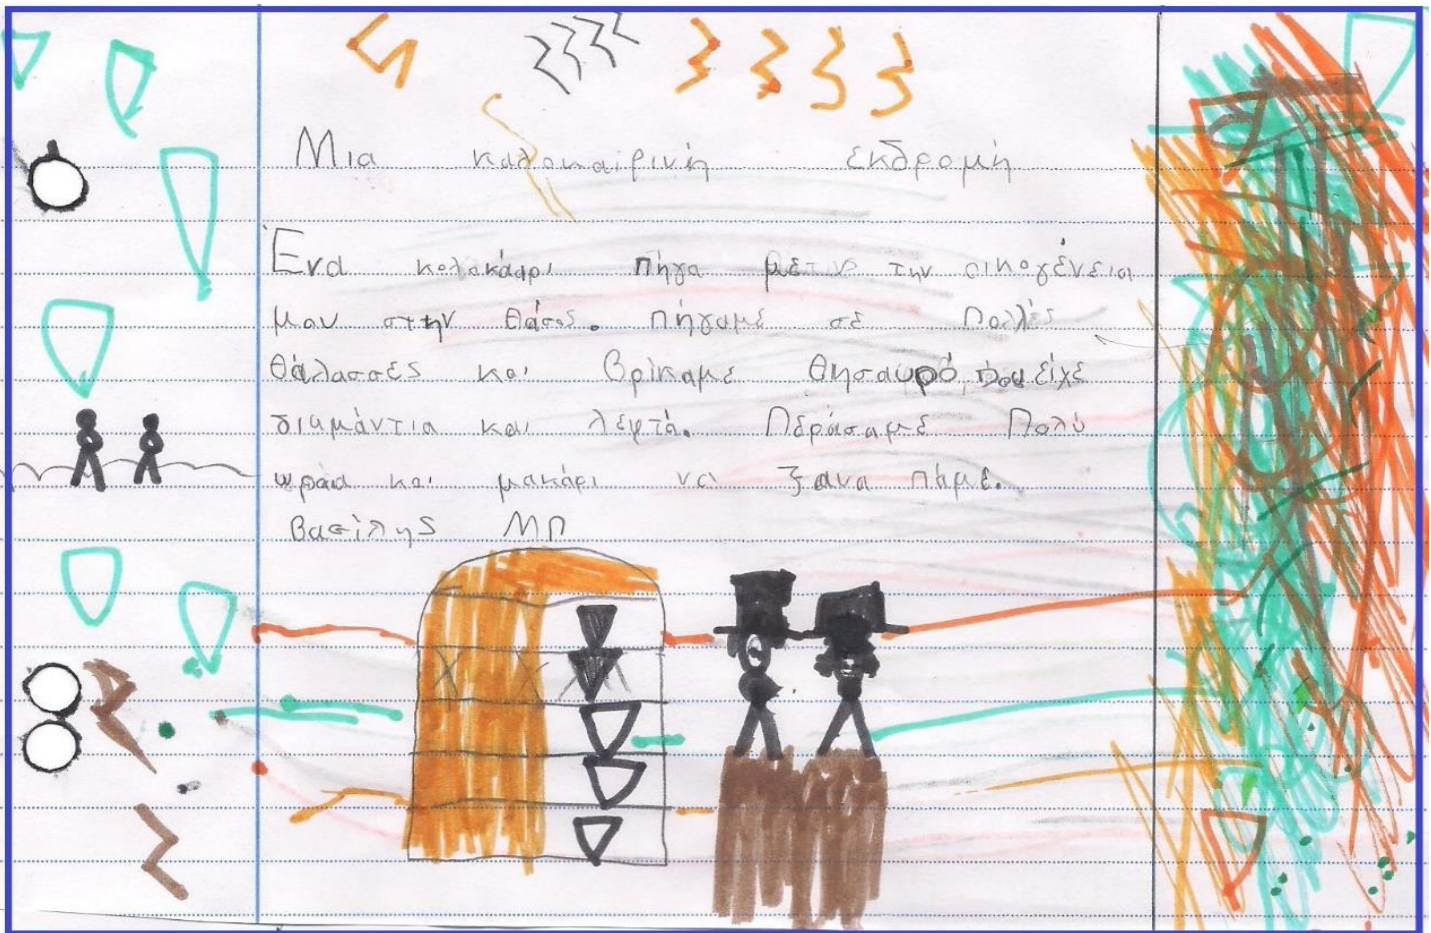 Μια καλοκαιρινή εκδρομή
Ένα καλοκάαρι πήγα με την οικογένεια
μου στην Θάσο. πήγαμε σε Πολλές
θάλασσες και βρίκαμε θησαυρό, που είχε
διαμάντια και λεφτά. Περάσαμε Πολύ
ωραία και μακάρι να ξανα πάμε.
Βασίλης ΜΠ